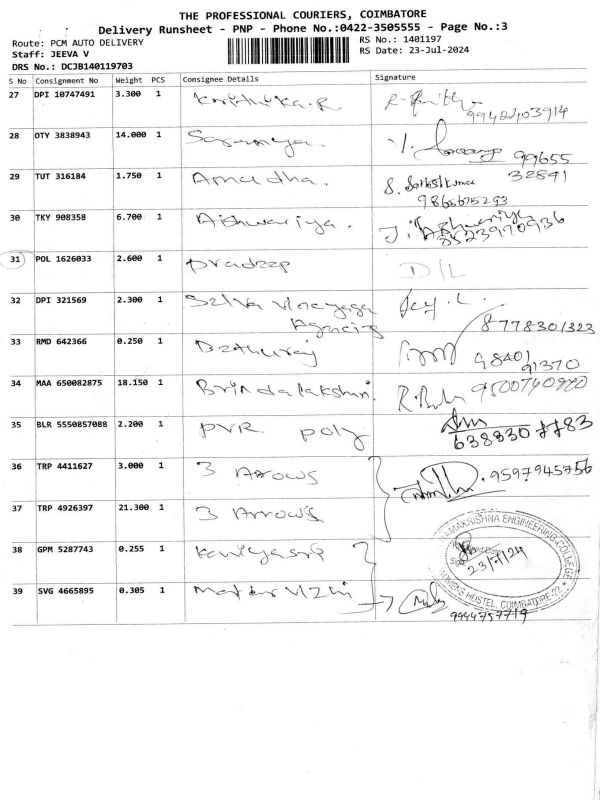 THE PROFESSIONAL COURIERS, COIMBATORE
Delivery Runsheet - PNP - Phone No.:0422-3505555 - Page No.:3
Route: PCM AUTO DELIVERY
RS No.: 1401197
Staff: JEEVA V
RS Date: 23-Jul-2024
DRS No.: DCJB140119703
S No Consignment No Weight PCS Consignee Details Signature
27 DPI 10747491 3.300 1 Krithika.R
28 OTY 3838943 14.000 1 Saranya. 99655
32841
29 TUT 316184 1.750 1 Amudha. S. Sathish Kumar
9865675293
30 TKY 908358 6.700 1 Aishwariya. J. Aishwariya
8523970936
31 POL 1626033 2.600 1 Pradeep D/L
32 DPI 321569 2.300 1 Selva Vinayaga
Agencis
8778301323
33 RMD 642366 0.250 1 98401
91370
34 MAA 650082875 18.150 1 Brindalakshmi.
35 BLR 5550857088 2.200 1 PVR poly
6383307783
36 TRP 4411627 3.000 1 3 Arrows 9597945756
37 TRP 4926397 21.300 1 3 Arrows
38 GPM 5287743 0.255 1 Kaviyasri
RAMAKRISHNA ENGINEERING COLLEGE
23/7/24
HOSTEL, COIMBATORE-22.
39 SVG 4665895 0.305 1
9994757719